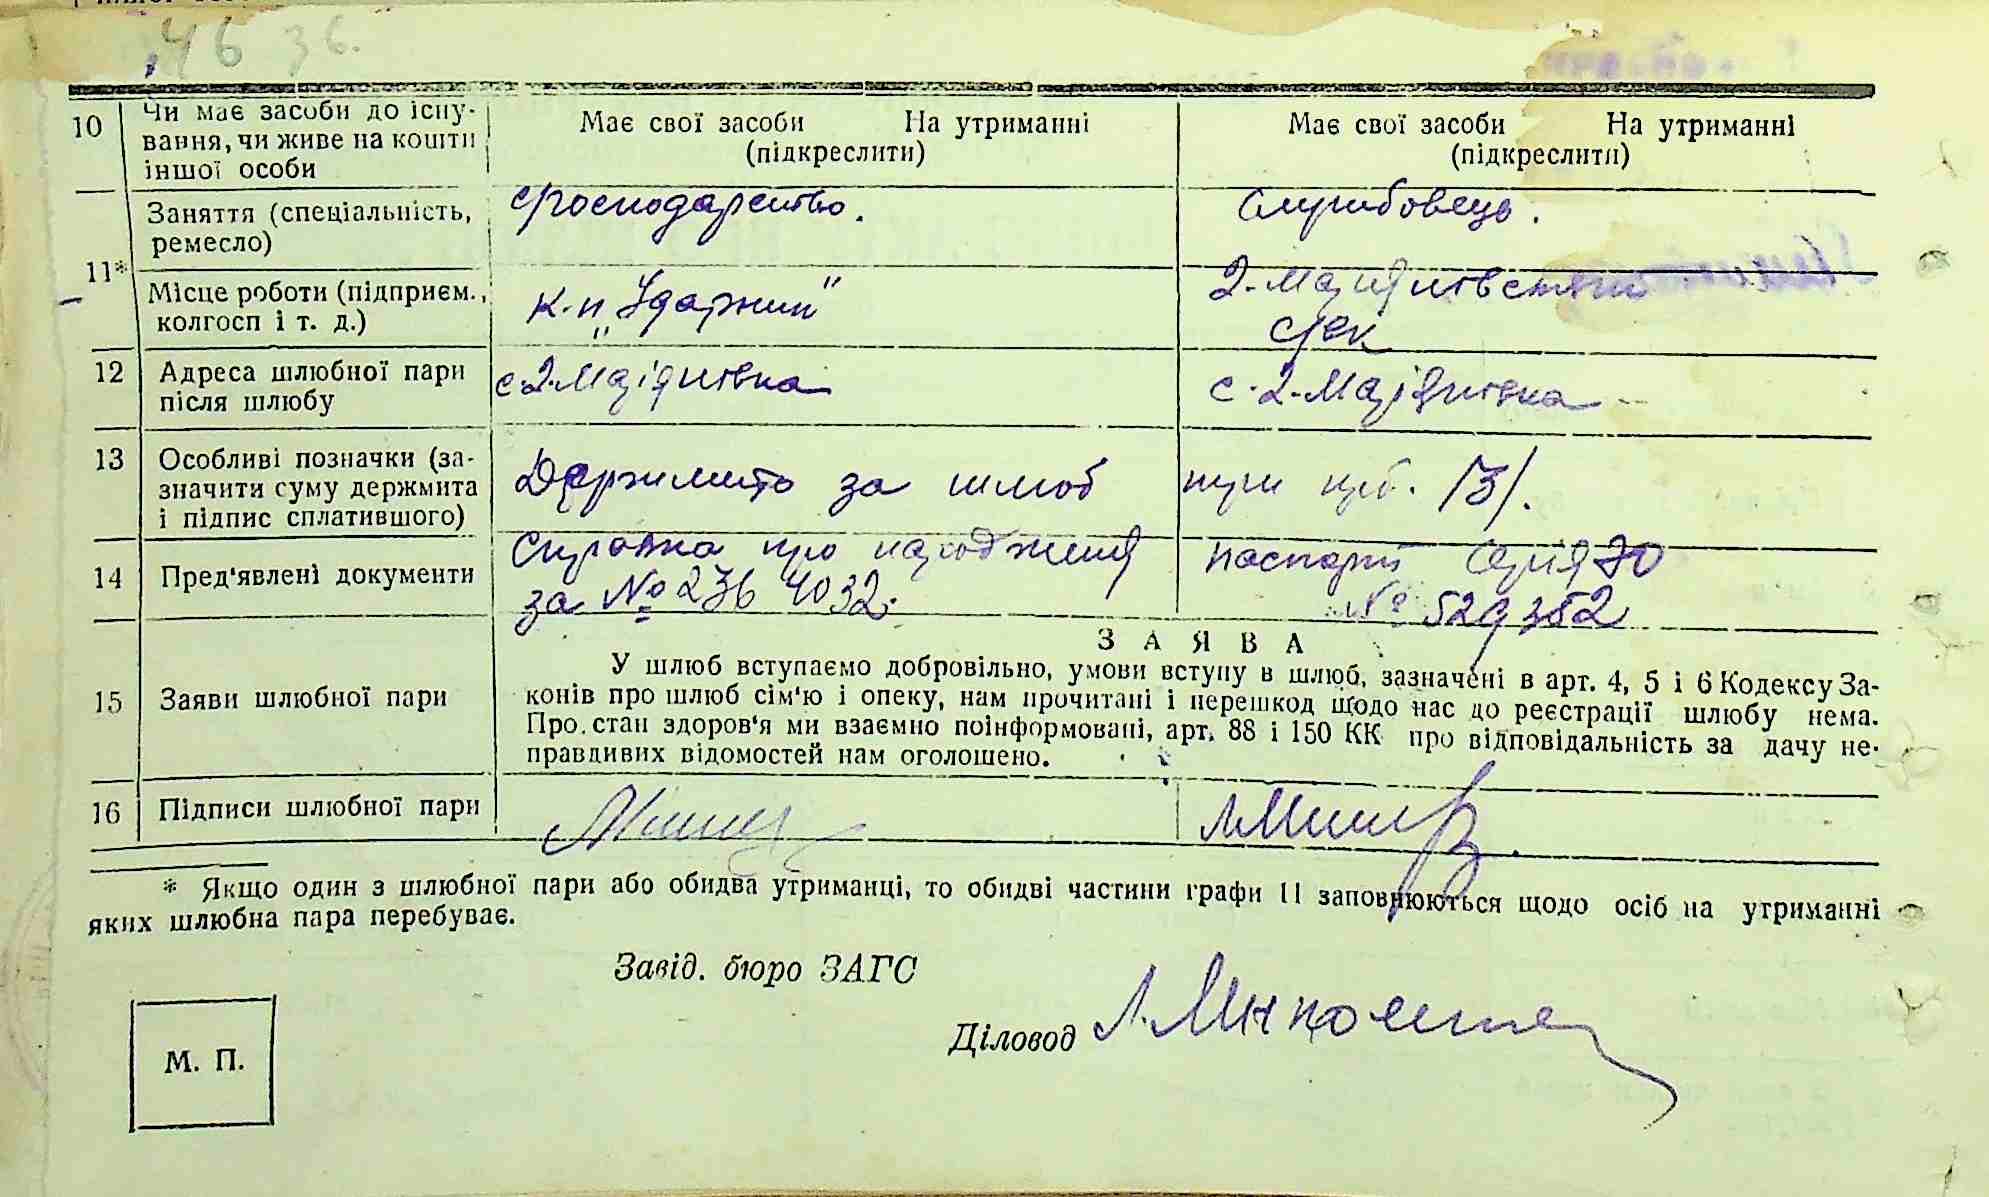 46 36.
10
Чи має засоби до існу-
вання, чи живе на кошти
іншої особи
Має свої засоби На утриманні
(підкреслити)
Має свої засоби На утриманні
(підкреслити)
11*
Заняття (спеціальність,
ремесло)
господарство.
Службовець.
Місце роботи (підприєм.,
колгосп і т. д.)
к-п „Ударник"
12
Адреса шлюбної пари
після шлюбу
13
Особливі позначки (за-
значити суму держмита
і підпис сплатившого)
Держмито за шлюб
три крб. /3/.
14
Пред'явлені документи
Справка про народження
за № 236 4032.
паспорт Серія
№ 529352
15
Заяви шлюбної пари
ЗАЯВА
У шлюб вступаємо добровільно, умови вступу в шлюб, зазначені в арт. 4, 5 і 6 Кодексу За-
конів про шлюб сім'ю і опеку, нам прочитані і перешкод щодо нас до реєстрації шлюбу нема.
Про стан здоров'я ми взаємно поінформовані, арт. 88 і 150 КК про відповідальність за дачу не-
правдивих відомостей нам оголошено.
16
Підписи шлюбної пари
* Якщо один з шлюбної пари або обидва утриманці, то обидві частини графи 11 заповнюються щодо осіб на утриманні
яких шлюбна пара перебуває.
Завід. бюро ЗАГС
Діловод
М. П.